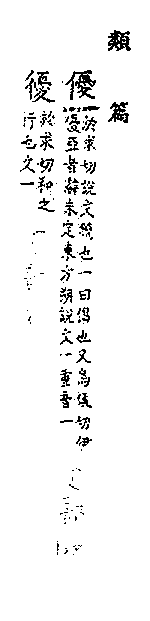 類篇
優 於求切說文饒也一曰倡也又烏侯切伊
優亞者辭未定東方朔說文一重音一
㥑 於求切和之
行也文一